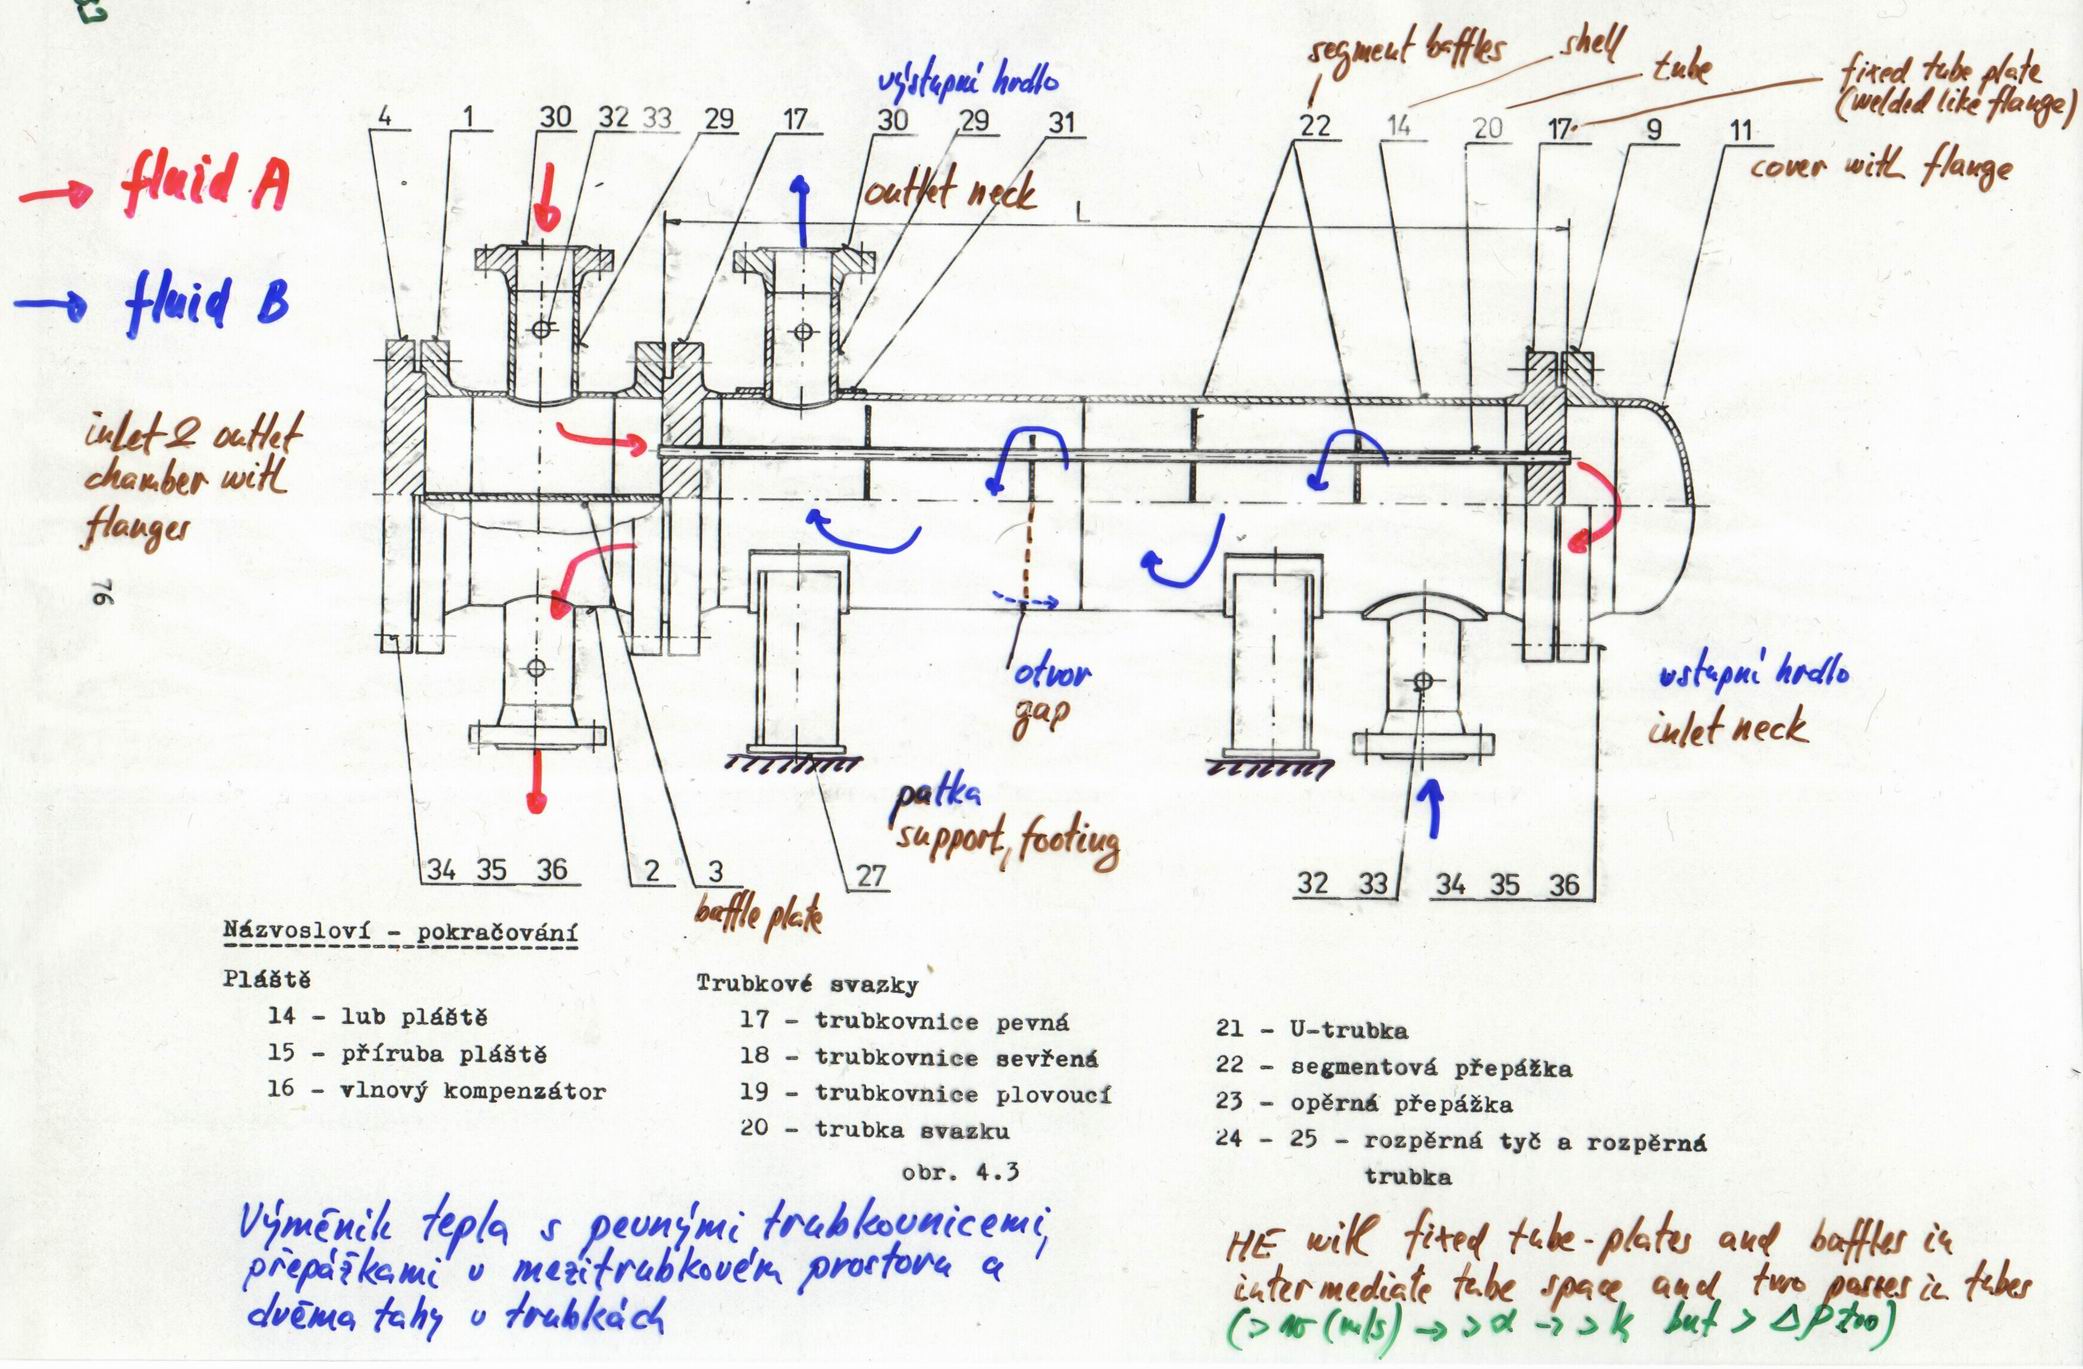 segment baffles
shell
tube
fixed tube plate
(welded like flange)
výstupní hrdlo
4 1 30 32 33 29 17 30 29 31 22 14 20 17 9 11
cover with flange
outlet neck
L
fluid A
fluid B
inlet & outlet
chamber with
flanges
76
otvor
gap
vstupní hrdlo
inlet neck
patka
support, footing
34 35 36 2 3 27 32 33 34 35 36
baffle plate
Názvosloví - pokračování
Pláště
14 - lub pláště
15 - příruba pláště
16 - vlnový kompenzátor
Trubkové svazky
17 - trubkovnice pevná
18 - trubkovnice sevřená
19 - trubkovnice plovoucí
20 - trubka svazku
obr. 4.3
21 - U-trubka
22 - segmentová přepážka
23 - opěrná přepážka
24 - 25 - rozpěrná tyč a rozpěrná
trubka
Výměník tepla s pevnými trubkovnicemi,
přepážkami v mezitrubkovém prostoru a
dvěma tahy v trubkách
HE with fixed tube-plates and baffles in
intermediate tube space and two passes in tubes
(> w (m/s) → > α → > k but > Δp